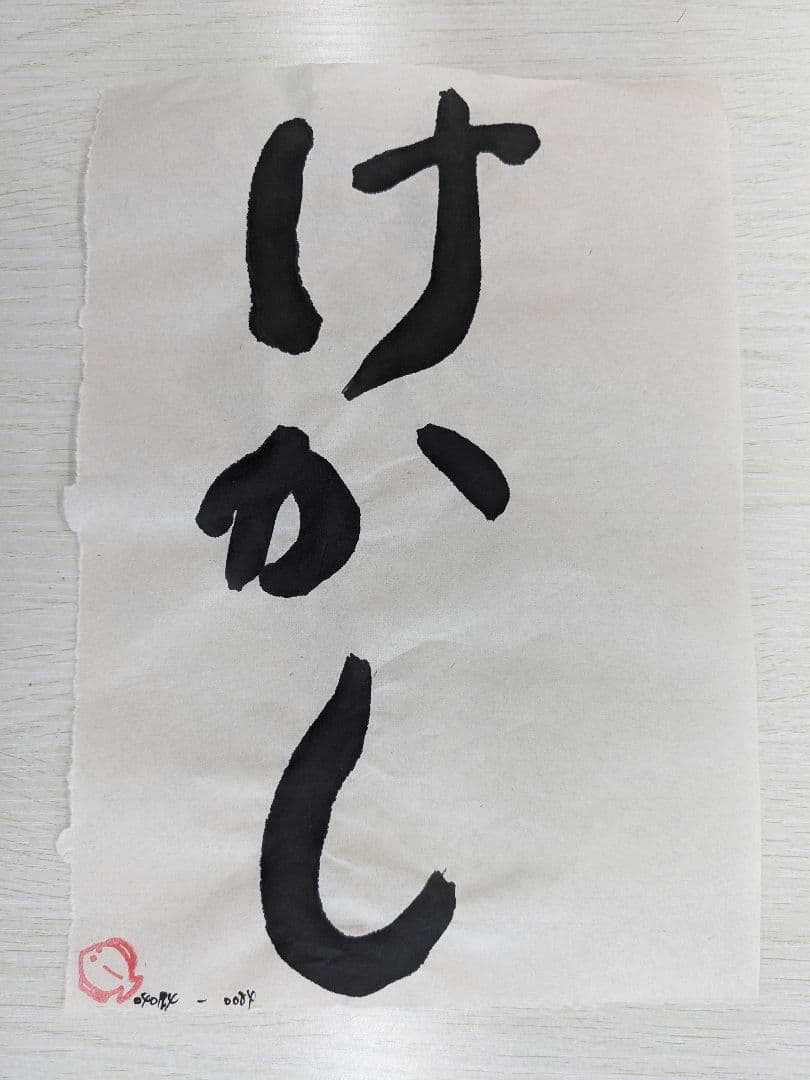 けかし